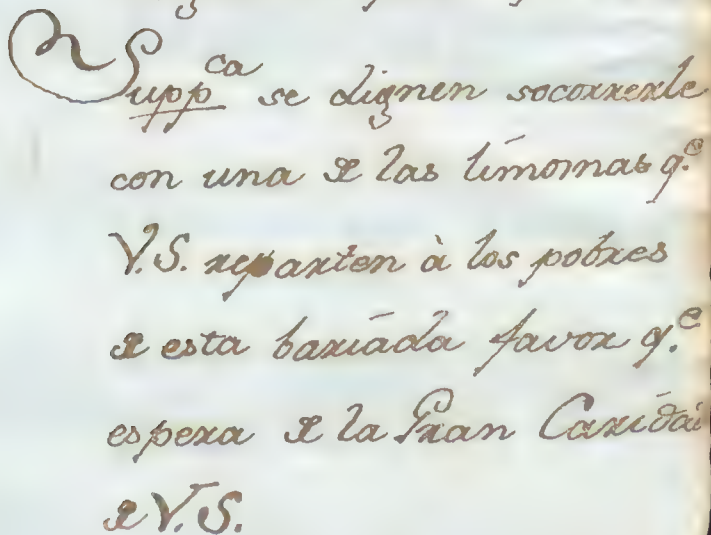 Supp.ca se dignen socorrerle
con una de las limornas q.e
V.S. reparten à los pobres
de esta bariada favor q.e
espera de la Gran Caridad
de V.S.